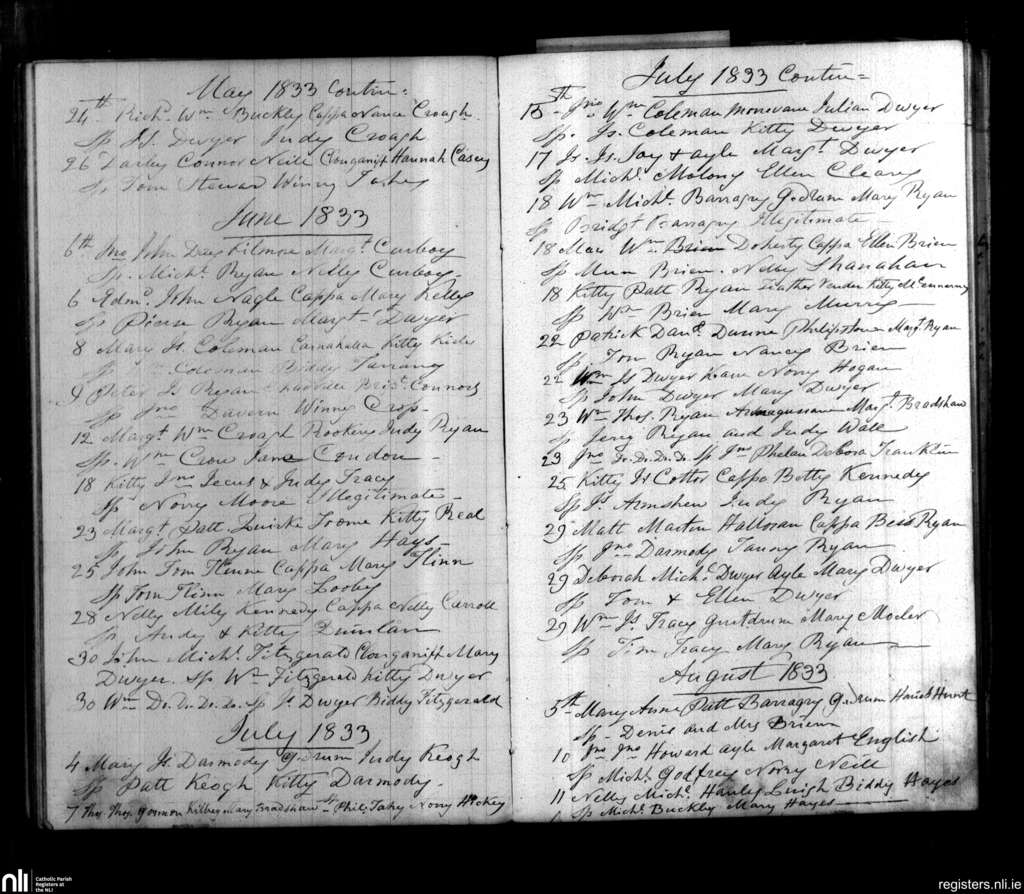 May 1833 Contin=
24th Richd. Wm Buckley Cappa Nance Croagh
Sp Js. Dwyer Judy Croagh
26 Darley Connor Neill Clonganiff Hannah Casey
Sp Tom Winny
June 1833
6th Jno John Kilmore Margt Curboy
Sp. Michl. Ryan Nelly Curboy
6 Edmd. John Nagle Cappa Mary Kelly
Sp Pierse Ryan Margt Dwyer
8 Mary Js. Coleman Kitty
Sp Coleman Biddy
9 Peter Js Ryan Bridt. Connors
Sp Jno Davern Winny
12 Margt. Wm Croagh Judy Ryan
Sp. Wm Crow Jane Condon
18 Kitty Jno & Judy Tracy
Sp Norry Moore Illegitimate
23 Margt Patt Toome Kitty Real
Sp John Ryan Mary Hays
25 John Tom Cappa Mary Flinn
Sp Tom Flinn Mary Looby
28 Nelly Miley Kennedy Cappa Nelly Carroll
Sp Andy & Kitty Quinlan
30 John Michl. Fitzgerald Clonganiff Mary
Dwyer. Sp Wm Fitzgerald Kitty Dwyer
30 Wm Do. Do. Do. Do. Sp Js. Dwyer Biddy Fitzgerald
July 1833
4 Mary Js Darmody Judy Keogh
Sp Patt Keogh Kitty Darmody
7 Thos Thos. Gorman Kilbeg Mary Bradshaw Sp Phil. Norry Hickey
July 1833 Contin=
15th Jno Wm Coleman Monovane Julian Dwyer
Sp. Js. Coleman Kitty Dwyer
17 Js. Js. Joy & ayle Margt. Dwyer
Sp Michl. Molony Ellen Cleary
18 Wm Michl. Barragry Mary Ryan
Sp Bridgt Barragry Illegitimate
18 Mau Wm Brien Doherty Cappa Ellen Brien
Sp Mun Brien. Nelly Shanahan
18 Kitty Patt Ryan Kitty
Sp Wm Brien Mary
22 Patrick Danl. Dunne Philipstown Margt. Ryan
Sp Tom Ryan Nancy Brien
22 Wm Js Dwyer Norry Hogan
Sp John Dwyer Mary Dwyer
23 Wm Thos. Ryan Margt Bradshaw
Sp Jerry Ryan and Judy Wall
23 Jno Do. Do. Do. Do Sp Jno Phelan Debora Franklin
25 Kitty Js Cotter Cappa Betty Kennedy
Sp Js. Judy Ryan
29 Matt Martin Halloran Cappa Bess Ryan
Sp Jno Darmody Ryan
29 Deborah Michl. Dwyer Ayle Mary Dwyer
Sp Tom & Ellen Dwyer
29 Wm Js. Tracy Mary
Sp Tim Tracy Mary Ryan
August 1833
5th Mary Anne Patt Barragry
Sp Denis and Mrs Brien
10 Jno Jno Howard ayle Margaret English
Sp Michl. Godfrey Norry Neill
11 Nelly Michl. Hanly Biddy Hayes
Sp Michl. Buckley Mary Hayes
nli
Catholic Parish
Registers at
the NLI
registers.nli.ie